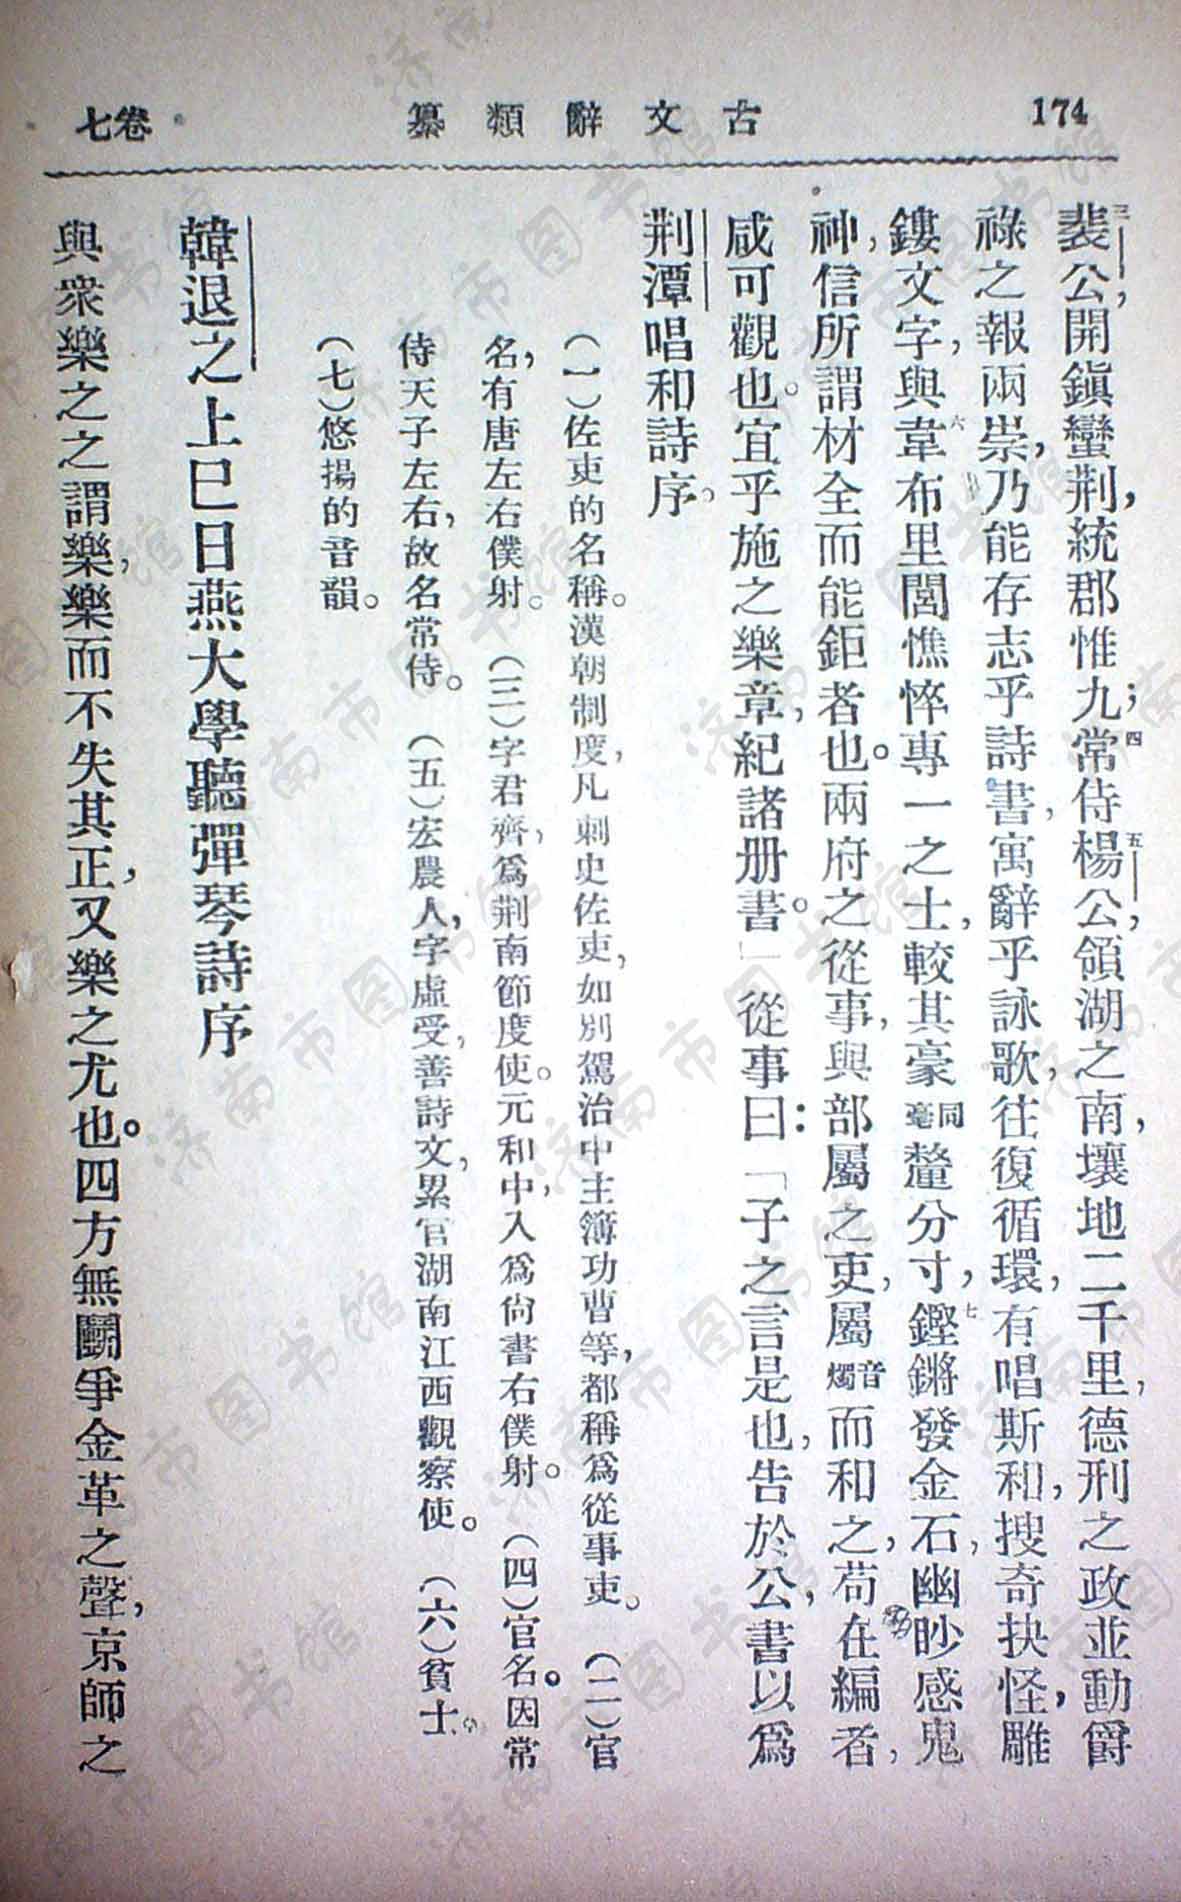 174
古文辭類纂
卷七
三裴公,開鎭蠻荆,統郡惟九;四常侍五楊公,領湖之南,壤地二千里,德刑之政並動,爵
祿之報兩崇,乃能存志乎詩書,寓辭乎詠歌,往復循環,有唱斯和,搜奇抉怪,雕
鏤文字,與六韋布里閭憔悴專一之士,較其豪同毫釐分寸,七鏗鏘發金石,幽眇感鬼
神,信所謂材全而能鉅者也。兩府之從事,與部屬之吏,屬音燭而和之,苟在編者,
咸可觀也。宜乎施之樂章,紀諸册書。」從事曰:「子之言是也,告於公,書以爲
荆潭唱和詩序。
(一)佐吏的名稱。漢朝制度,凡刺史佐吏,如別駕治中主簿功曹等,都稱爲從事吏。 (二)官
名,有唐左右僕射。 (三)字君齊,爲荆南節度使。元和中,入爲尙書右僕射。 (四)官名。因常
侍天子左右,故名常侍。 (五)宏農人,字虛受,善詩文,累官湖南江西觀察使。 (六)貧士。
(七)悠揚的音韻。
韓退之上巳日燕大學聽彈琴詩序
與衆樂之之謂樂,樂而不失其正,又樂之尤也。四方無鬭爭金革之聲,京師之
济南市图书馆